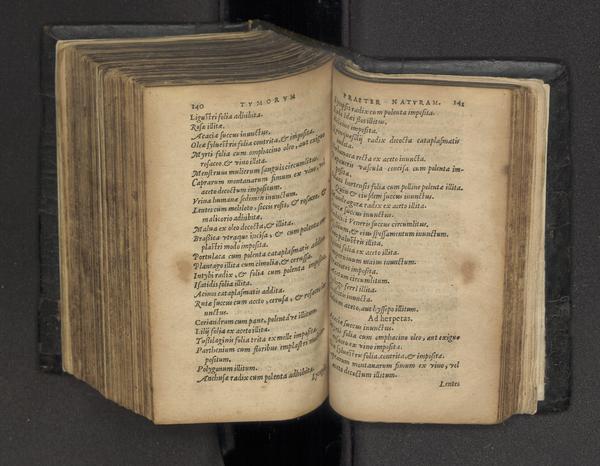 140 TVMORVM
Ligustri folia adhibita.
Rosæ illitæ.
Acaciæ succus inunctus.
Oleæ syluestris folia contrita, & imposita.
Myrti folia cum omphacino oleo, aut exiguo
rosaceo & vino illita.
Menstruum mulierum sanguis circumlitus.
Caprarum montanarum fimum ex vino, vel
aceto decoctum impositum.
Vrinæ humanæ sedimen inunctum.
Lentes cum meliloto, siccis rosis, & rosaceo, &
malicorio adhibitæ.
Malua ex oleo decocta, & illita.
Brassica vtraque incisa, & cum polenta em
plastri modo imposita.
Portulaca cum polenta cataplasmatis addita
Plantago illita cum cimolia, & cerussa.
Intybi radix, & folia cum polenta imposita
Isatidis folia illita.
Acinos cataplasmatis addita.
Rutæ succus cum aceto, cerusa, & rosaceo
nunctus.
Coriandrum cum pane, polentáve illitum.
Lilii folia ex aceto illita.
Tussilaginis folia trita ex melle imposita.
Parthenium cum floribus emplastri modo
positum.
Polygonum illitum.
Anchusæ radix cum polenta adhibita.
PRAETER NATVRAM. 141
radix cum polenta imposita.
flos illitus.
imposita.
radix decocta cataplasmatis
recta ex aceto inuncta.
vascula concisa cum polenta im-
posita.
hortensis folia cum polline polentæ illita.
& eiusdem succus inunctus.
radix ex aceto illita.
succus inunctus.
Veneris succus circumlitus.
& eius spissamentum inunctum.
palustris illita.
folia ex aceto illita.
maius inunctum.
imposita.
circumlitum.
ferri illita.
inuncta.
aceto, aut hyssopo illitum.
Ad herpetas.
Acaciæ succus inunctus.
folia cum omphacino oleo, aut exiguo
rosaceo ex vino imposita.
syluestris folia contrita, & imposita.
Caprarum montanarum fimum ex vino, vel
aceto decoctum illitum.
Lentes